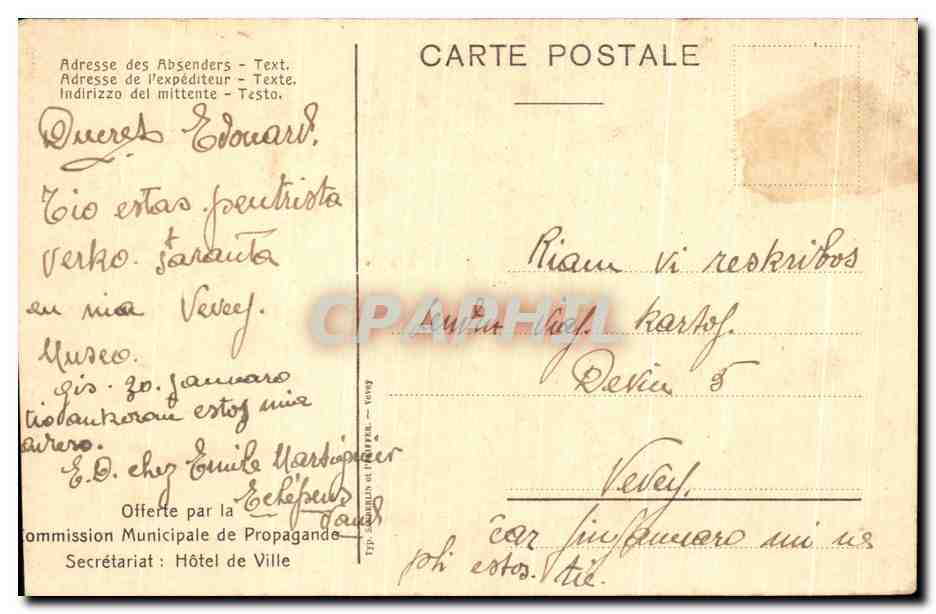 CARTE POSTALE
Adresse des Absenders - Text.
Adresse de l'expéditeur - Texte.
Indirizzo del mittente - Testo.
Ducret Edouard.
Tio estas pentrista
verko. ŝtaranta
en nia Vevey.
Museo.
gis. 20. Januaro
tio ankoraŭ estos mia
E.D. chez Emile Martignier
Eclépens
Vaud
Offerte par la
Commission Municipale de Propagande
Secrétariat : Hôtel de Ville
et PFEIFFER. — Vevey
Kiam vi reskribos
viaj. kartoj.
5
Vevey.
ĉar Januaro mi ne
estos. tie.
CPAPHIL